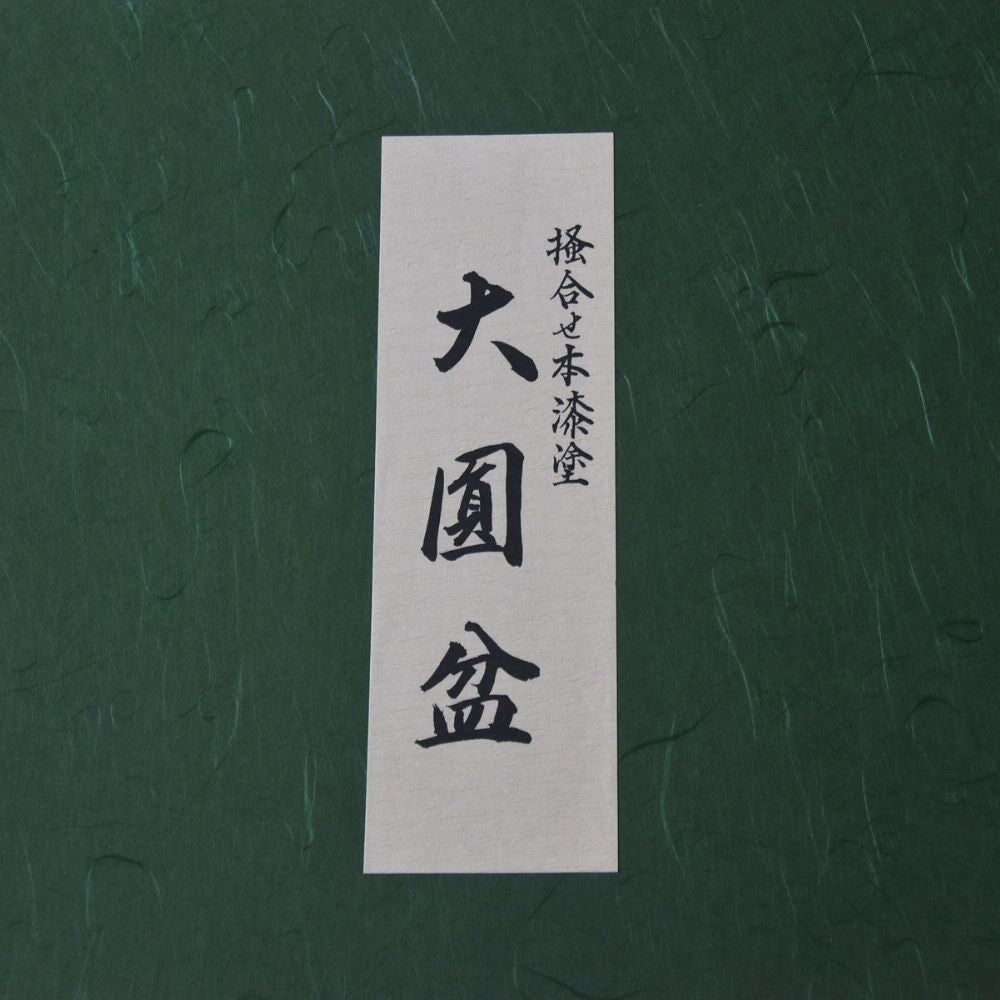 掻合せ本漆塗
大圓盆